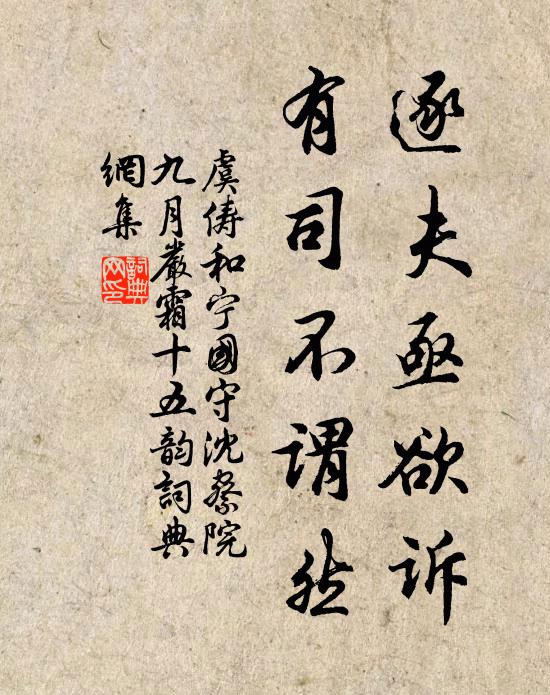 逐夫亟欲诉
有司不谓然
虞俦和宁國守沈察院
九月嚴霜十五韵詞典
網集
詞典網印